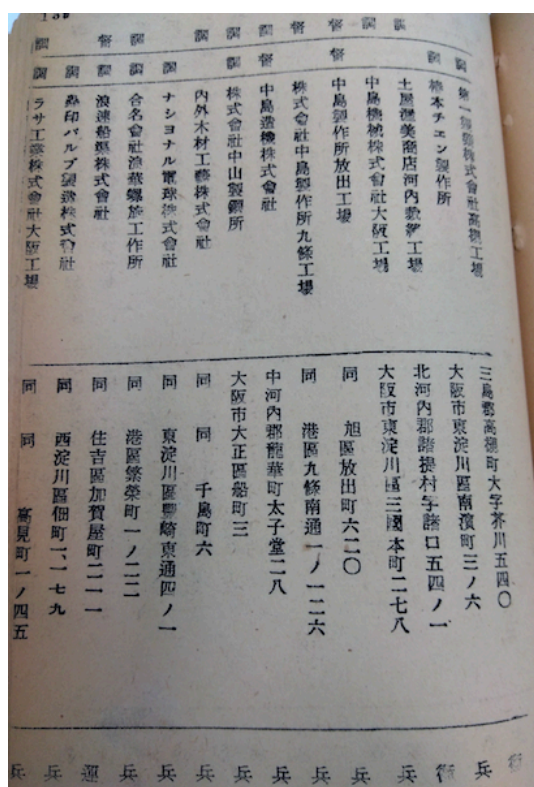 第一製藥株式會社高槻工場 三島郡高槻町大字芥川五四〇 衛
椿本チエン製作所 大阪市東淀川區南濱町三ノ六 兵
土屋渥美商店河内工場 北河内郡諸堤村字諸口五四ノ一 衛
中島機械株式會社大阪工場 大阪市東淀川區三國本町二七八 兵
中島製作所放出工場 同 旭區放出町六二〇 兵
株式會社中島製作所九條工場 同 港區九條南通一ノ一二六 兵
中島造機株式會社 中河内郡龍華町太子堂二八 兵
株式會社中山製鋼所 大阪市大正區船町三 兵
内外木材工藝株式會社 同 同 千島町六 兵
ナシヨナル電球株式會社 同 東淀川區豐崎東通四ノ一 兵
合名會社浪華螺旋工作所 同 港區繁榮町一ノ二二 兵
浪速船渠株式會社 同 住吉區加賀屋町二一一 運
森印バルブ製造株式會社 同 西淀川區佃町一、一七九 兵
ラサ工業株式會社大阪工場 同 同 高見町一ノ四五 兵